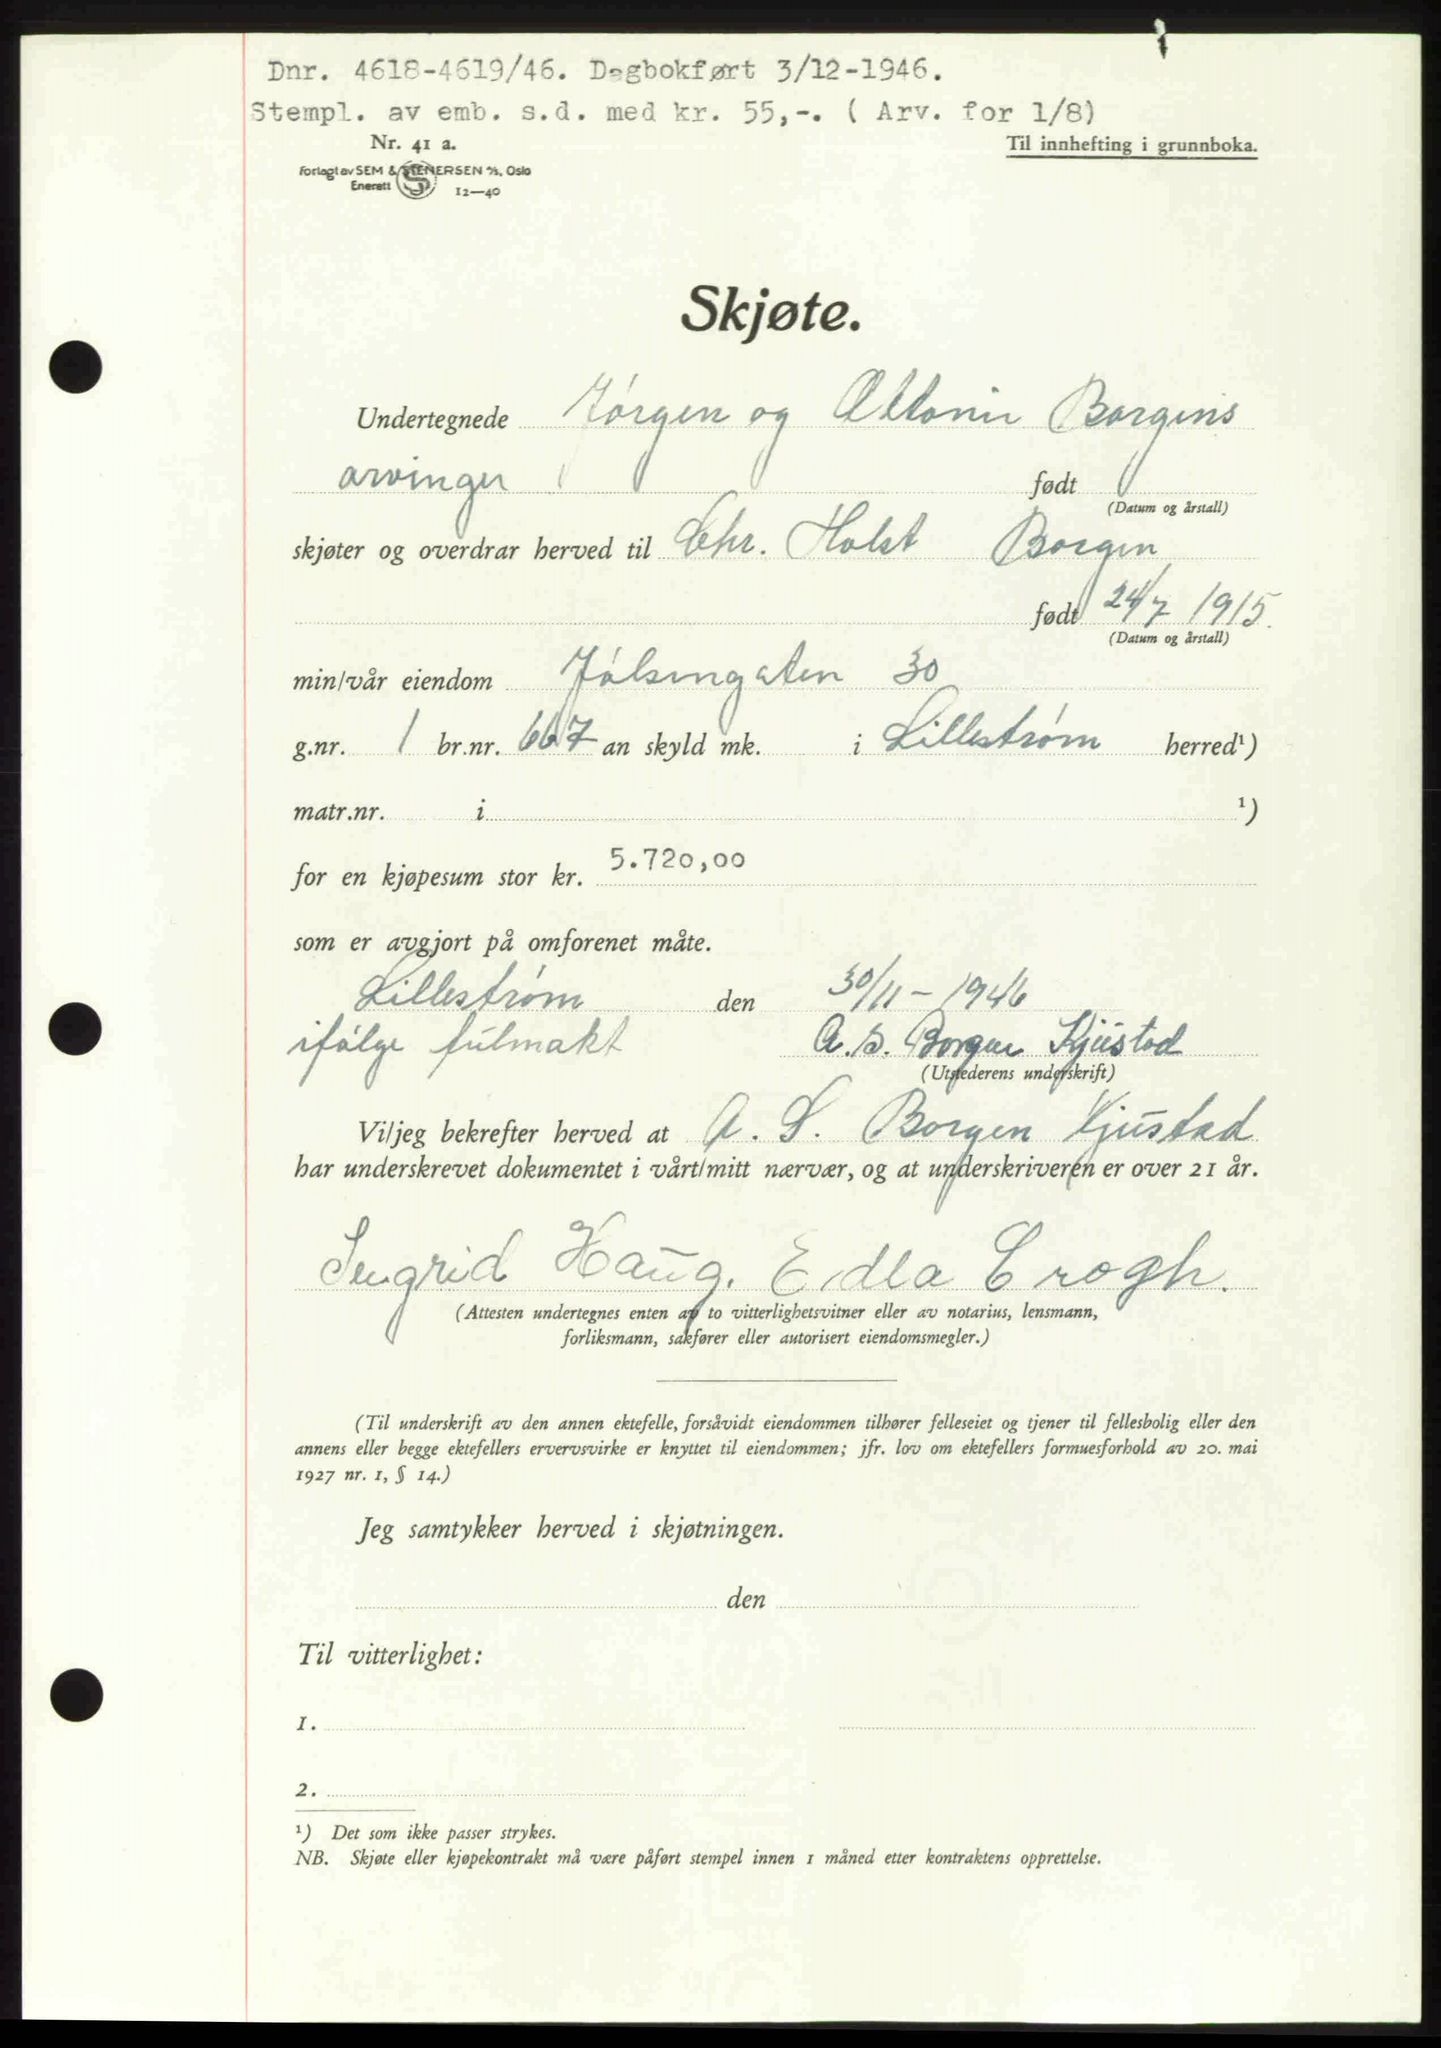 Dnr. 4618-4619/46. Dagbokført 3/12-1946.
Stempl. av emb. s.d. med kr. 55,-. ( Arv. for 1/8)
Nr. 41 a.
Til innhefting i grunnboka.
Forlagt av SEM & STENERSEN A/S, Oslo
Enerett
12—40
Skjøte.
Undertegnede Jørgen og Borgens
arvinger født
(Datum og årstall)
skjøter og overdrar herved til Chr. Holst Borgen
født 24/7 1915.
(Datum og årstall)
min/vår eiendom Jølsengaten 30
g.nr. 1 br.nr. 667 an skyld mk. i Lillestrøm herred¹)
matr.nr. i ¹)
for en kjøpesum stor kr. 5.720,00
som er avgjort på omforenet måte.
Lillestrøm den 30/11 - 1946
ifølge fulmakt A. S. Borgen Kjustad
(Utstederens underskrift)
Vi/jeg bekrefter herved at A. S. Borgen Kjustad
har underskrevet dokumentet i vårt/mitt nærvær, og at underskriveren er over 21 år.
Ingrid Haug. Edla Crogh.
(Attesten undertegnes enten av to vitterlighetsvitner eller av notarius, lensmann,
forliksmann, sakfører eller autorisert eiendomsmegler.)
(Til underskrift av den annen ektefelle, forsåvidt eiendommen tilhører felleseiet og tjener til fellesbolig eller den
annens eller begge ektefellers ervervsvirke er knyttet til eiendommen; jfr. lov om ektefellers formuesforhold av 20. mai
1927 nr. 1, § 14.)
Jeg samtykker herved i skjøtningen.
den
Til vitterlighet:
1.
2.
¹) Det som ikke passer strykes.
NB. Skjøte eller kjøpekontrakt må være påført stempel innen 1 måned etter kontraktens opprettelse.